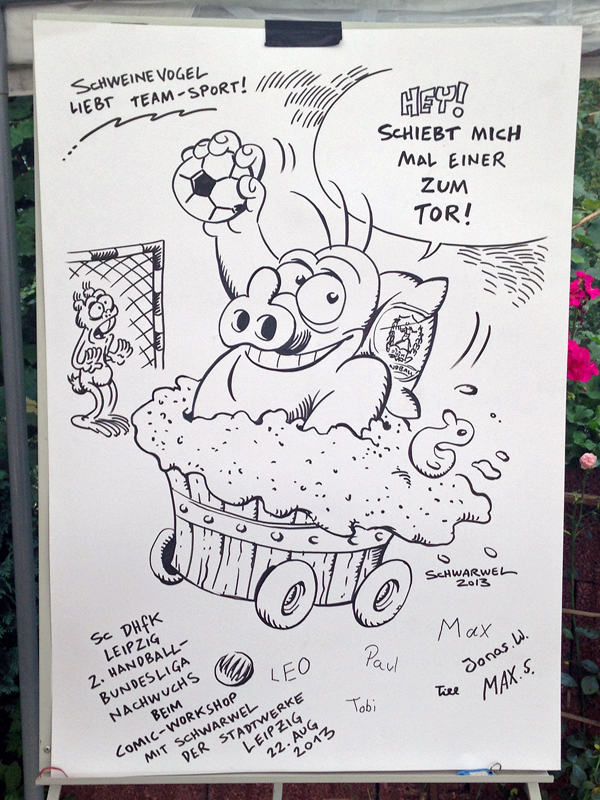 SCHWEINEVOGEL
LIEBT TEAM-SPORT!
HEY!
SCHIEBT MICH
MAL EINER
ZUM
TOR!
SCHWARWEL
2013
SC DHfK
LEIPZIG
2. HANDBALL-
BUNDESLIGA
NACHWUCHS
BEIM
COMIC-WORKSHOP
MIT SCHWARWEL
DER STADTWERKE
LEIPZIG
22. AUG
2013
LEO
Paul
Max
Tobi
Till
Jonas.W.
MAX.S.